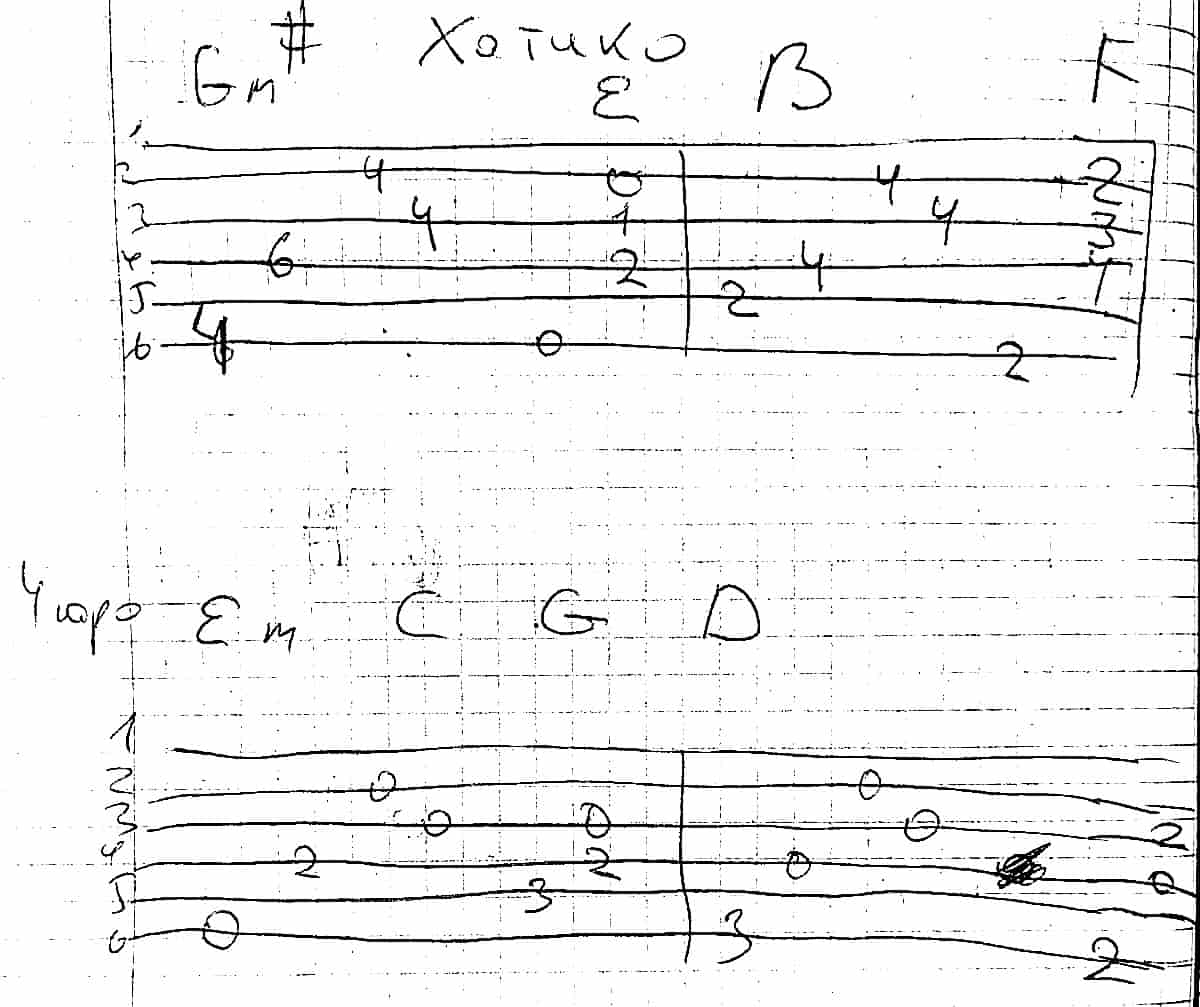 Хатико
Gm# E B F
1
2 4 0 4 2
3 4 1 4 3
4 6 2 4 4
5 2
6 4 0 2
Em C G D
1
2 0 0
3 0 0 0 2
4 2 2 0 0
5 3
6 0 3 2